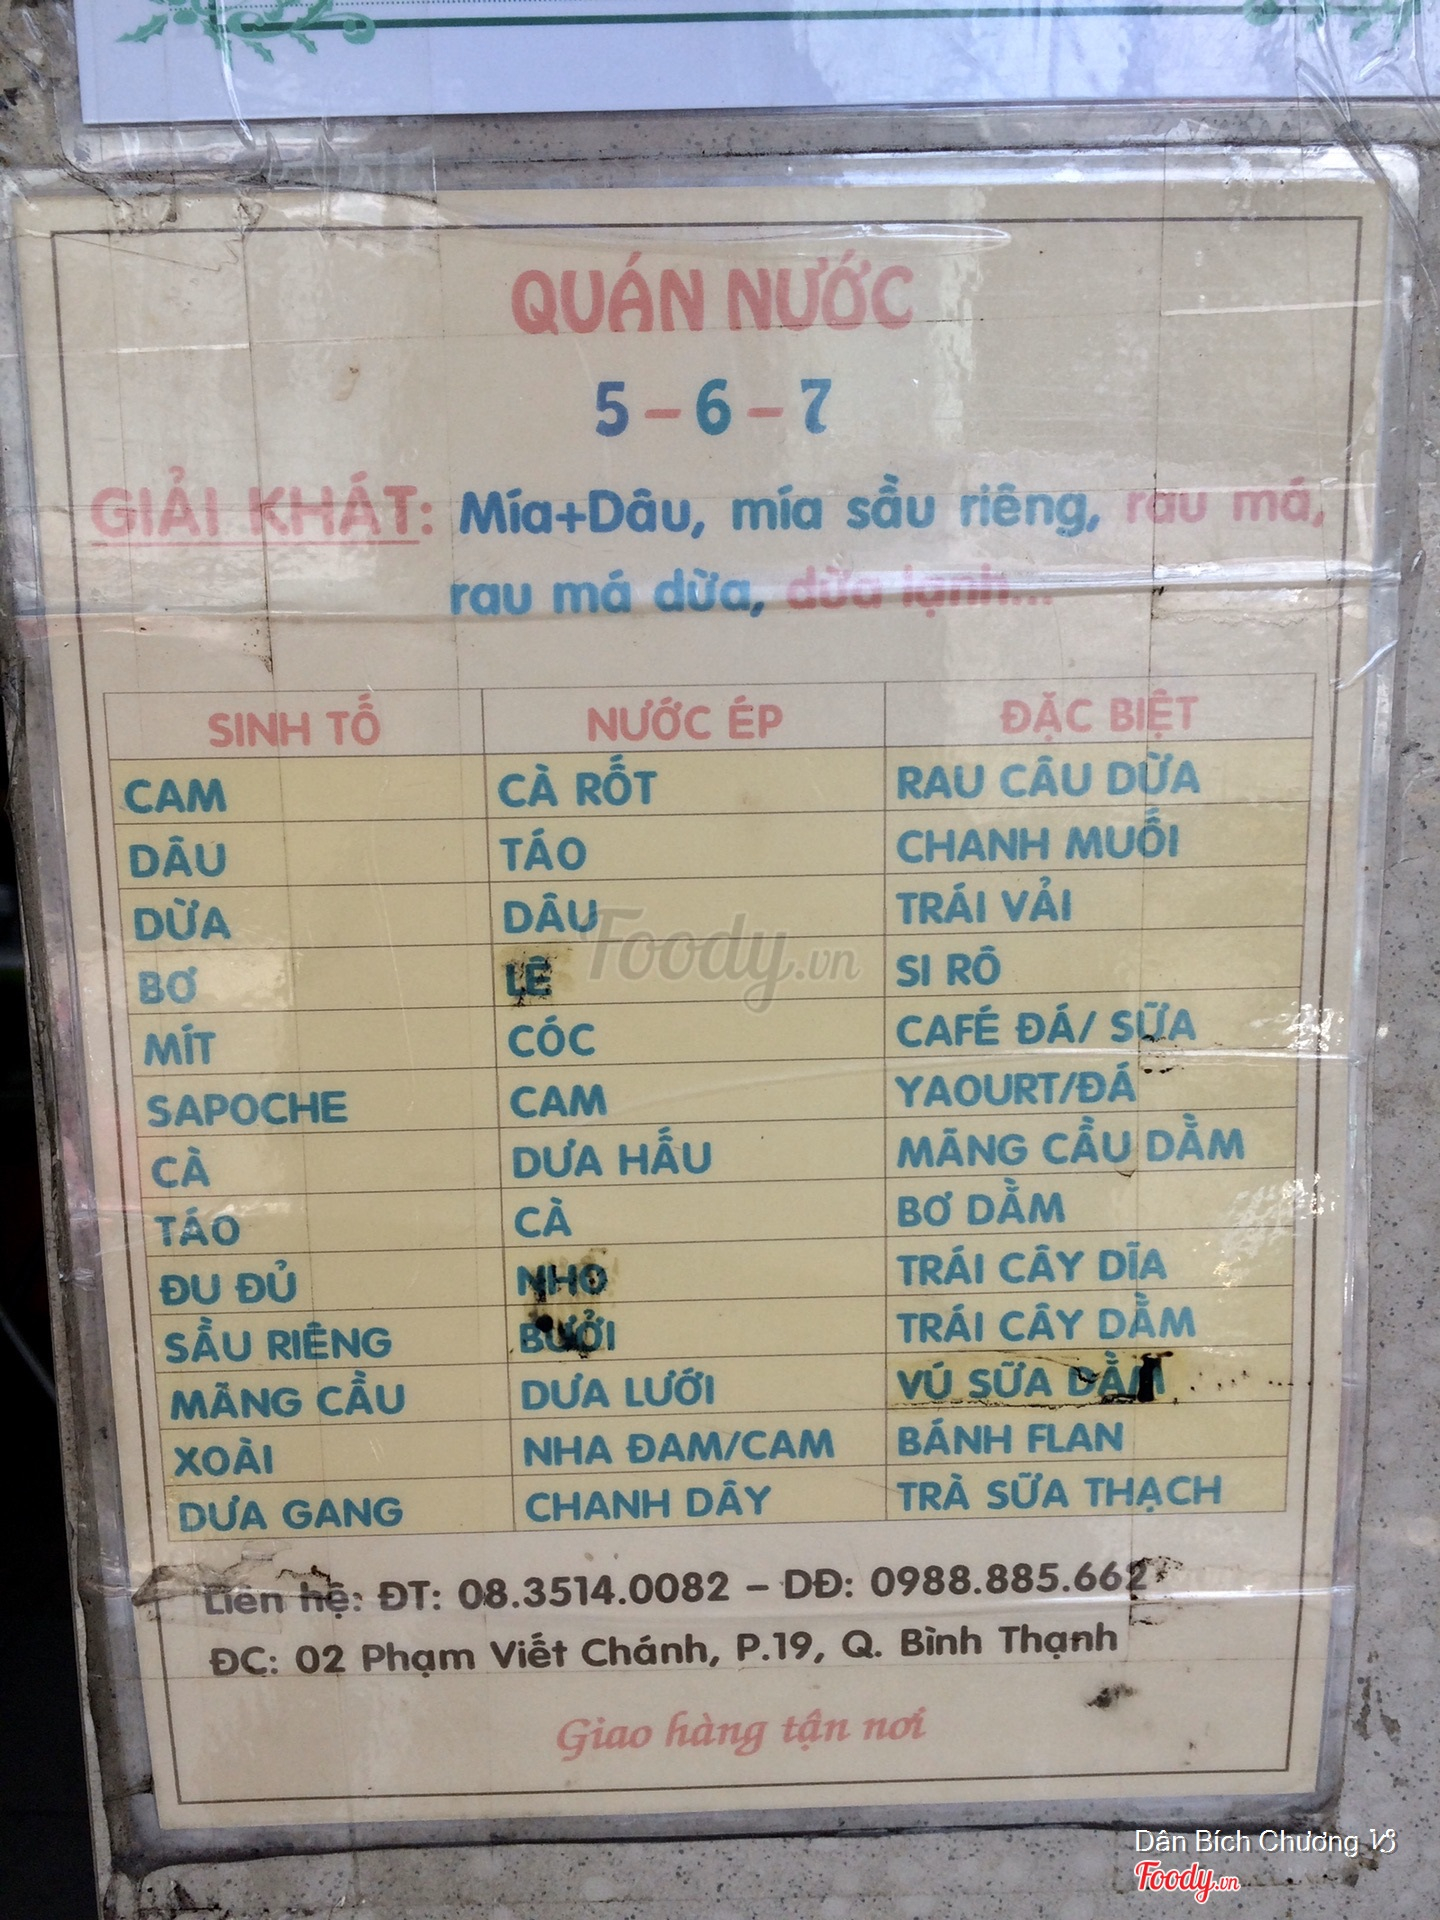 QUÁN NƯỚC
5 – 6 – 7
GIẢI KHÁT: Mía+Dâu, mía sầu riêng, rau má,
rau má dừa, dừa lạnh...
SINH TỐ NƯỚC ÉP ĐẶC BIỆT
CAM CÀ RỐT RAU CÂU DỪA
DÂU TÁO CHANH MUỐI
DỪA DÂU TRÁI VẢI
BƠ LÊ SI RÔ
MÍT CÓC CAFÉ ĐÁ/ SỮA
SAPOCHE CAM YAOURT/ĐÁ
CÀ DƯA HẤU MÃNG CẦU DẰM
TÁO CÀ BƠ DẰM
ĐU ĐỦ NHO TRÁI CÂY DĨA
SẦU RIÊNG BƯỞI TRÁI CÂY DẰM
MÃNG CẦU DƯA LƯỚI VÚ SỮA DẰM
XOÀI NHA ĐAM/CAM BÁNH FLAN
DƯA GANG CHANH DÂY TRÀ SỮA THẠCH
Liên hệ: ĐT: 08.3514.0082 – DĐ: 0988.885.662
ĐC: 02 Phạm Viết Chánh, P.19, Q. Bình Thạnh
Giao hàng tận nơi
Foody.vn
Dân Bích Chương
Foody.vn